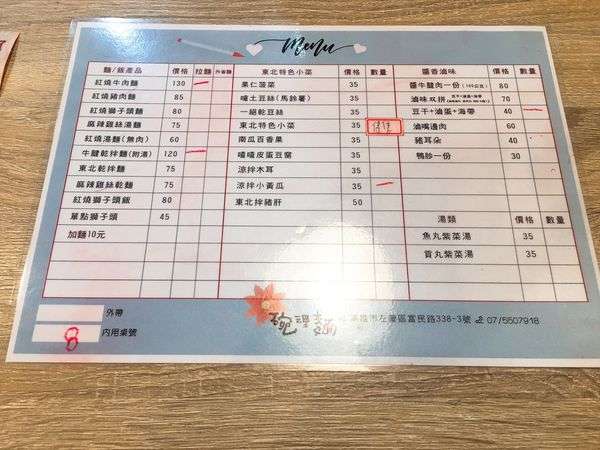 Menu
麵/飯產品 價格 拉麵 東北特色小菜 價格 數量 醬香滷味 價格 數量
紅燒牛肉麵 130 果仁菠菜 35 醬牛腱肉一份 80
紅燒豬肉麵 85 嗆土豆絲(馬鈴薯) 35 滷味双拼 70
紅燒獅子頭麵 80 一絕乾豆絲 35 豆干+滷蛋+海帶 40
麻辣雞絲湯麵 75 東北特色小菜 35 滷嘴邊肉 60
紅燒湯麵(無肉) 60 南瓜百香果 35 豬耳朵 40
牛腱乾拌麵(附湯) 120 嗑嗑皮蛋豆腐 35 鴨胗一份 30
東北乾拌麵 75 涼拌木耳 35
麻辣雞絲乾麵 75 涼拌小黃瓜 35
紅燒獅子頭飯 80 東北拌豬肝 50 湯類 價格 數量
單點獅子頭 45 魚丸紫菜湯 35
加麵10元 貢丸紫菜湯 35
外帶
8 內用桌號
市左營區富民路338-3號 07/5507918